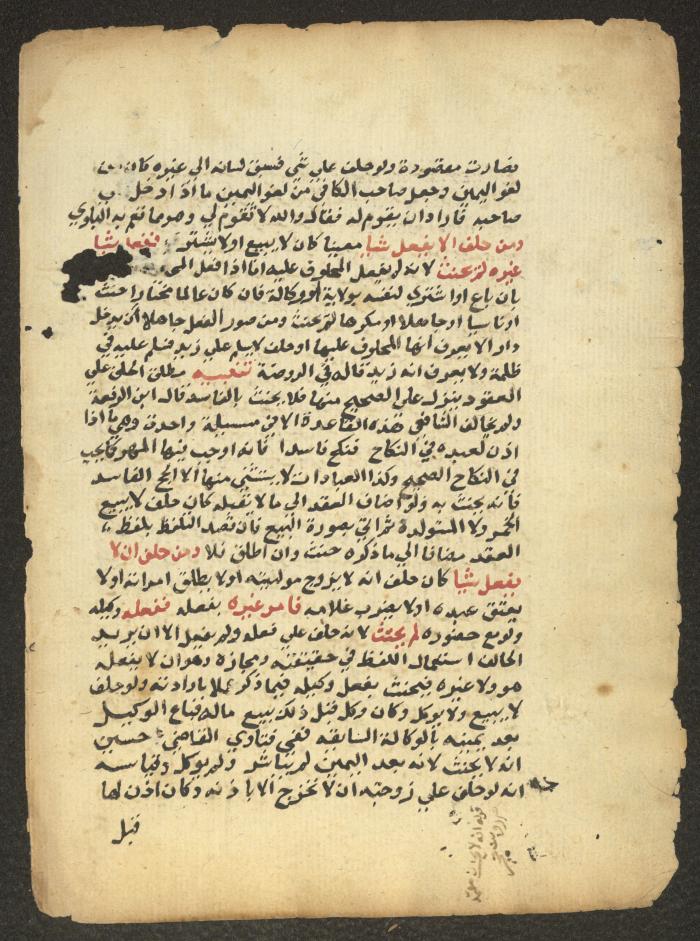 فصارت مقصودة ولو حلف علي شي فسبق لسانه الي غيره كان من
لغو اليمين وجعل صاحب الكافي من لغو اليمين ما اذا دخل علي
صاحبه فاراد ان يقوم له فقال والله لا تقوم لي وهو مما تعم به البلوي
ومن حلف الا يفعل شيا معينا كان لا يبيع او لا يشتري ففعل شيا
غيره لم يحنث لانه لم يفعل المحلوف عليه اما اذا فعل المحلوف
بان باع او اشتري لنفسه بولاية او وكالة فان كان عالما مختارا حنث
او ناسيا او جاهلا او مكرها لم يحنث ومن صور الفعل جاهلا ان يدخل
دارا لا يعرف انها المحلوف عليها او حلف لا يسلم علي زيد فسلم عليه في
ظلمة ولا يعرف انه زيد قاله في الروضة تنبيه مطلق الحلف علي
العقود ينزل علي الصحيح منها فلا يحنث بالفاسد قال ابن الرفعة
ولم يخالف الشافعي هذه القاعدة الا في مسيلة واحدة وهي ما اذا
اذن لعبده في النكاح فنكح فاسدا فانه اوجب فيها المهر كما يجب
في النكاح الصحيح وكذا العبادات لا يستثني منها الا الحج الفاسد
فانه يحنث به ولو اضاف العقد الي ما لا يقبله كان حلف لا يبيع
الخمر ولا المستولدة ثم اتي بصورة البيع فان قصد التلفظ بلفظ
العقد مضافا الي ما ذكره حنث وان اطلق فلا ومن حلف ان لا
يفعل شيا كان حلف انه لا يزوج موليته او لا يطلق امراته او لا
يعتق عبده او لا يضرب غلامه فامر غيره بفعله ففعله وكيله
ولو مع حضوره لم يحنث لانه حلف علي فعله ولم يفعل الا ان يريد
الحالف استعمال اللفظ في حقيقته ومجازه وهو ان لا يفعله
هو ولا غيره فيحنث بفعل وكيله فيما ذكر عملا بارادته ولو حلف
لا يبيع ولا يوكل وكان وكل قبل ذلك ببيع ماله فباع الوكيل
بعد يمينه بالوكالة السابقة ففي فتاوي القاضي حسين
انه لا يحنث لانه بعد اليمين لم يباشر ولم يوكل وقياسه
انه لو حلف علي زوجته ان لا تخرج الا باذنه وكان اذن لها
قبل
قوله انه لا يحنث